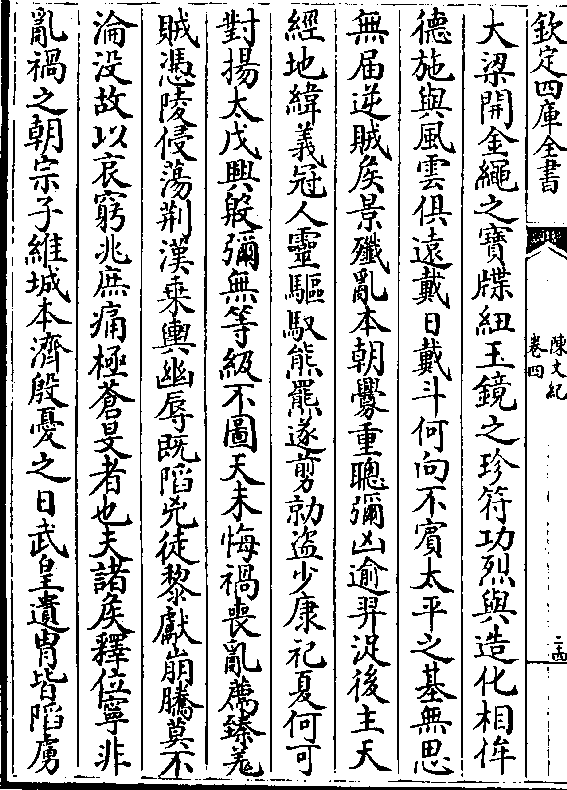 欽定四庫全書
陳文紀
卷四
二十四
大梁開金繩之寶牒紐玉鏡之珍符功烈與造化相侔
德施與風雲俱遠戴日戴斗何向不賓太平之基無思
無届逆賊侯景殲亂本朝釁重聰彌凶逾羿浞後主天
經地緯義冠人靈驅馭熊羆遂剪勍盜少康祀夏何可
對揚太戊興殷彌無等級不圖天未悔禍喪亂薦臻羗
賊憑陵侵蕩荆漢乗輿幽辱既陷兇徒黎獻崩騰莫不
淪没故以哀窮兆庶痛極蒼旻者也夫諸侯釋位寧非
亂禍之朝宗子維城本濟殷憂之日武皇遺胄皆陷虜